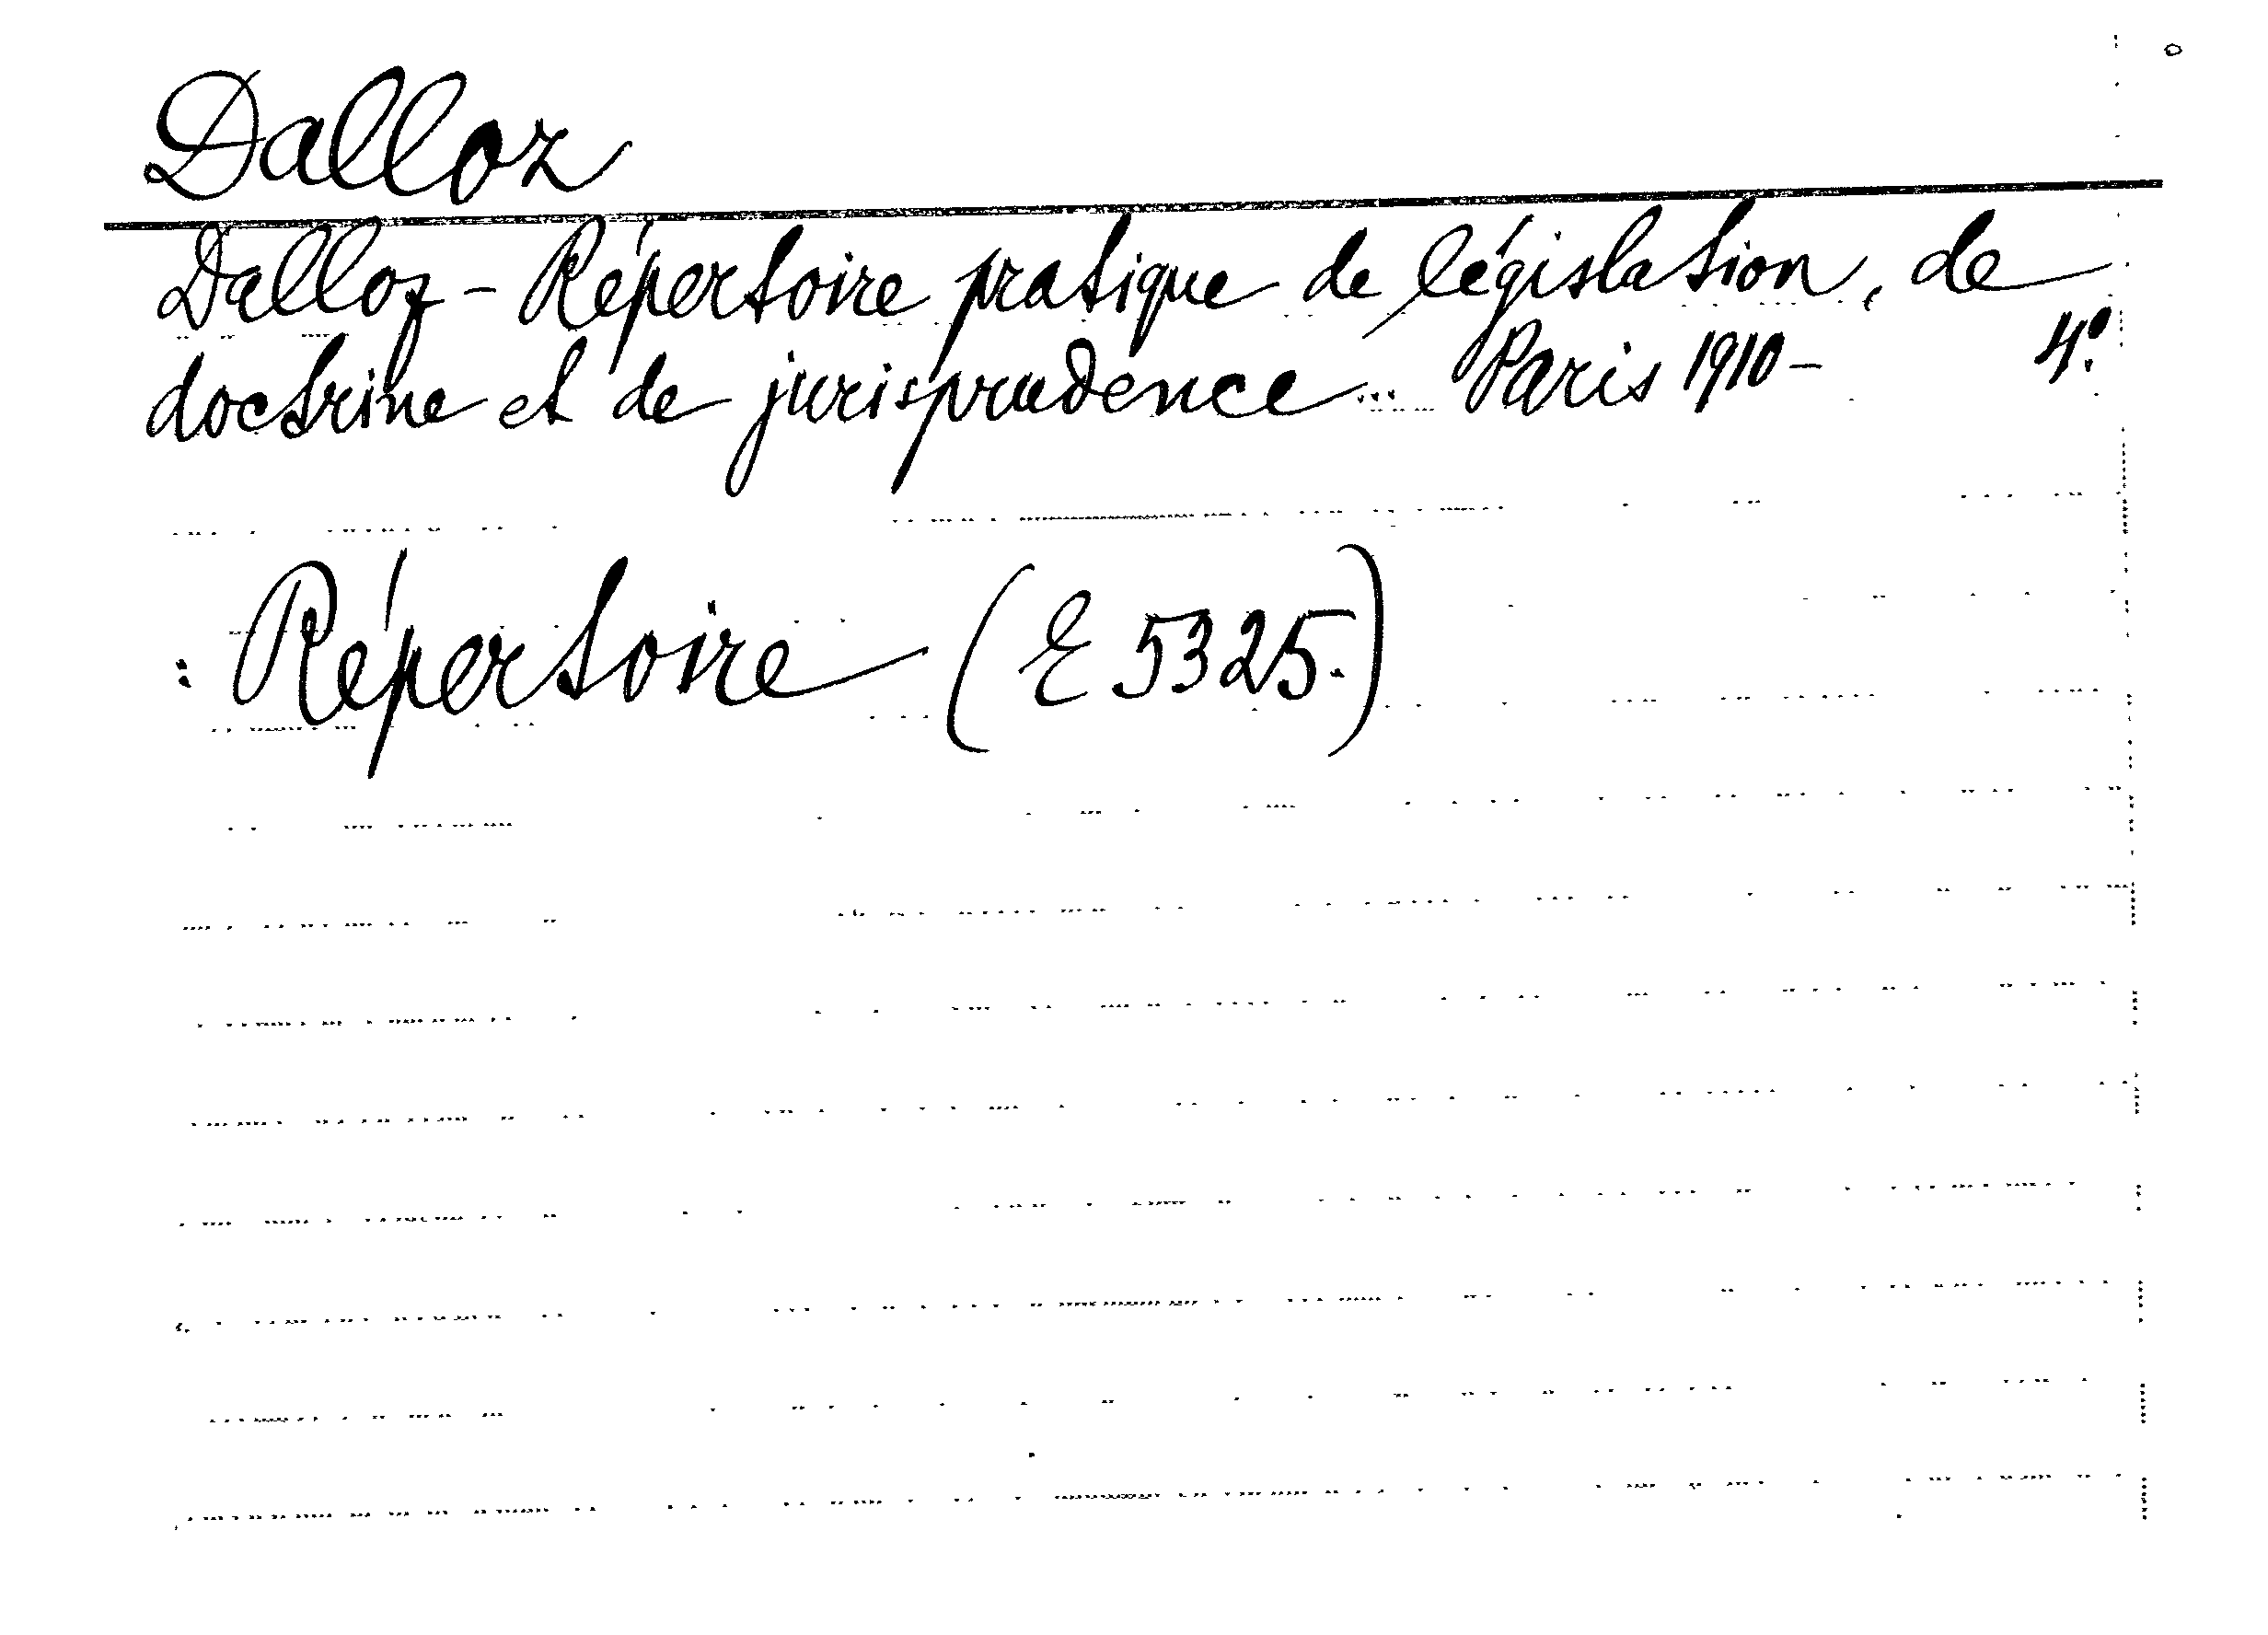 Dalloz
Dalloz - Répertoire pratique de législation, de
doctrine et de jurisprudence... Paris 1910 - 4º.
: Répertoire (E 5325.)